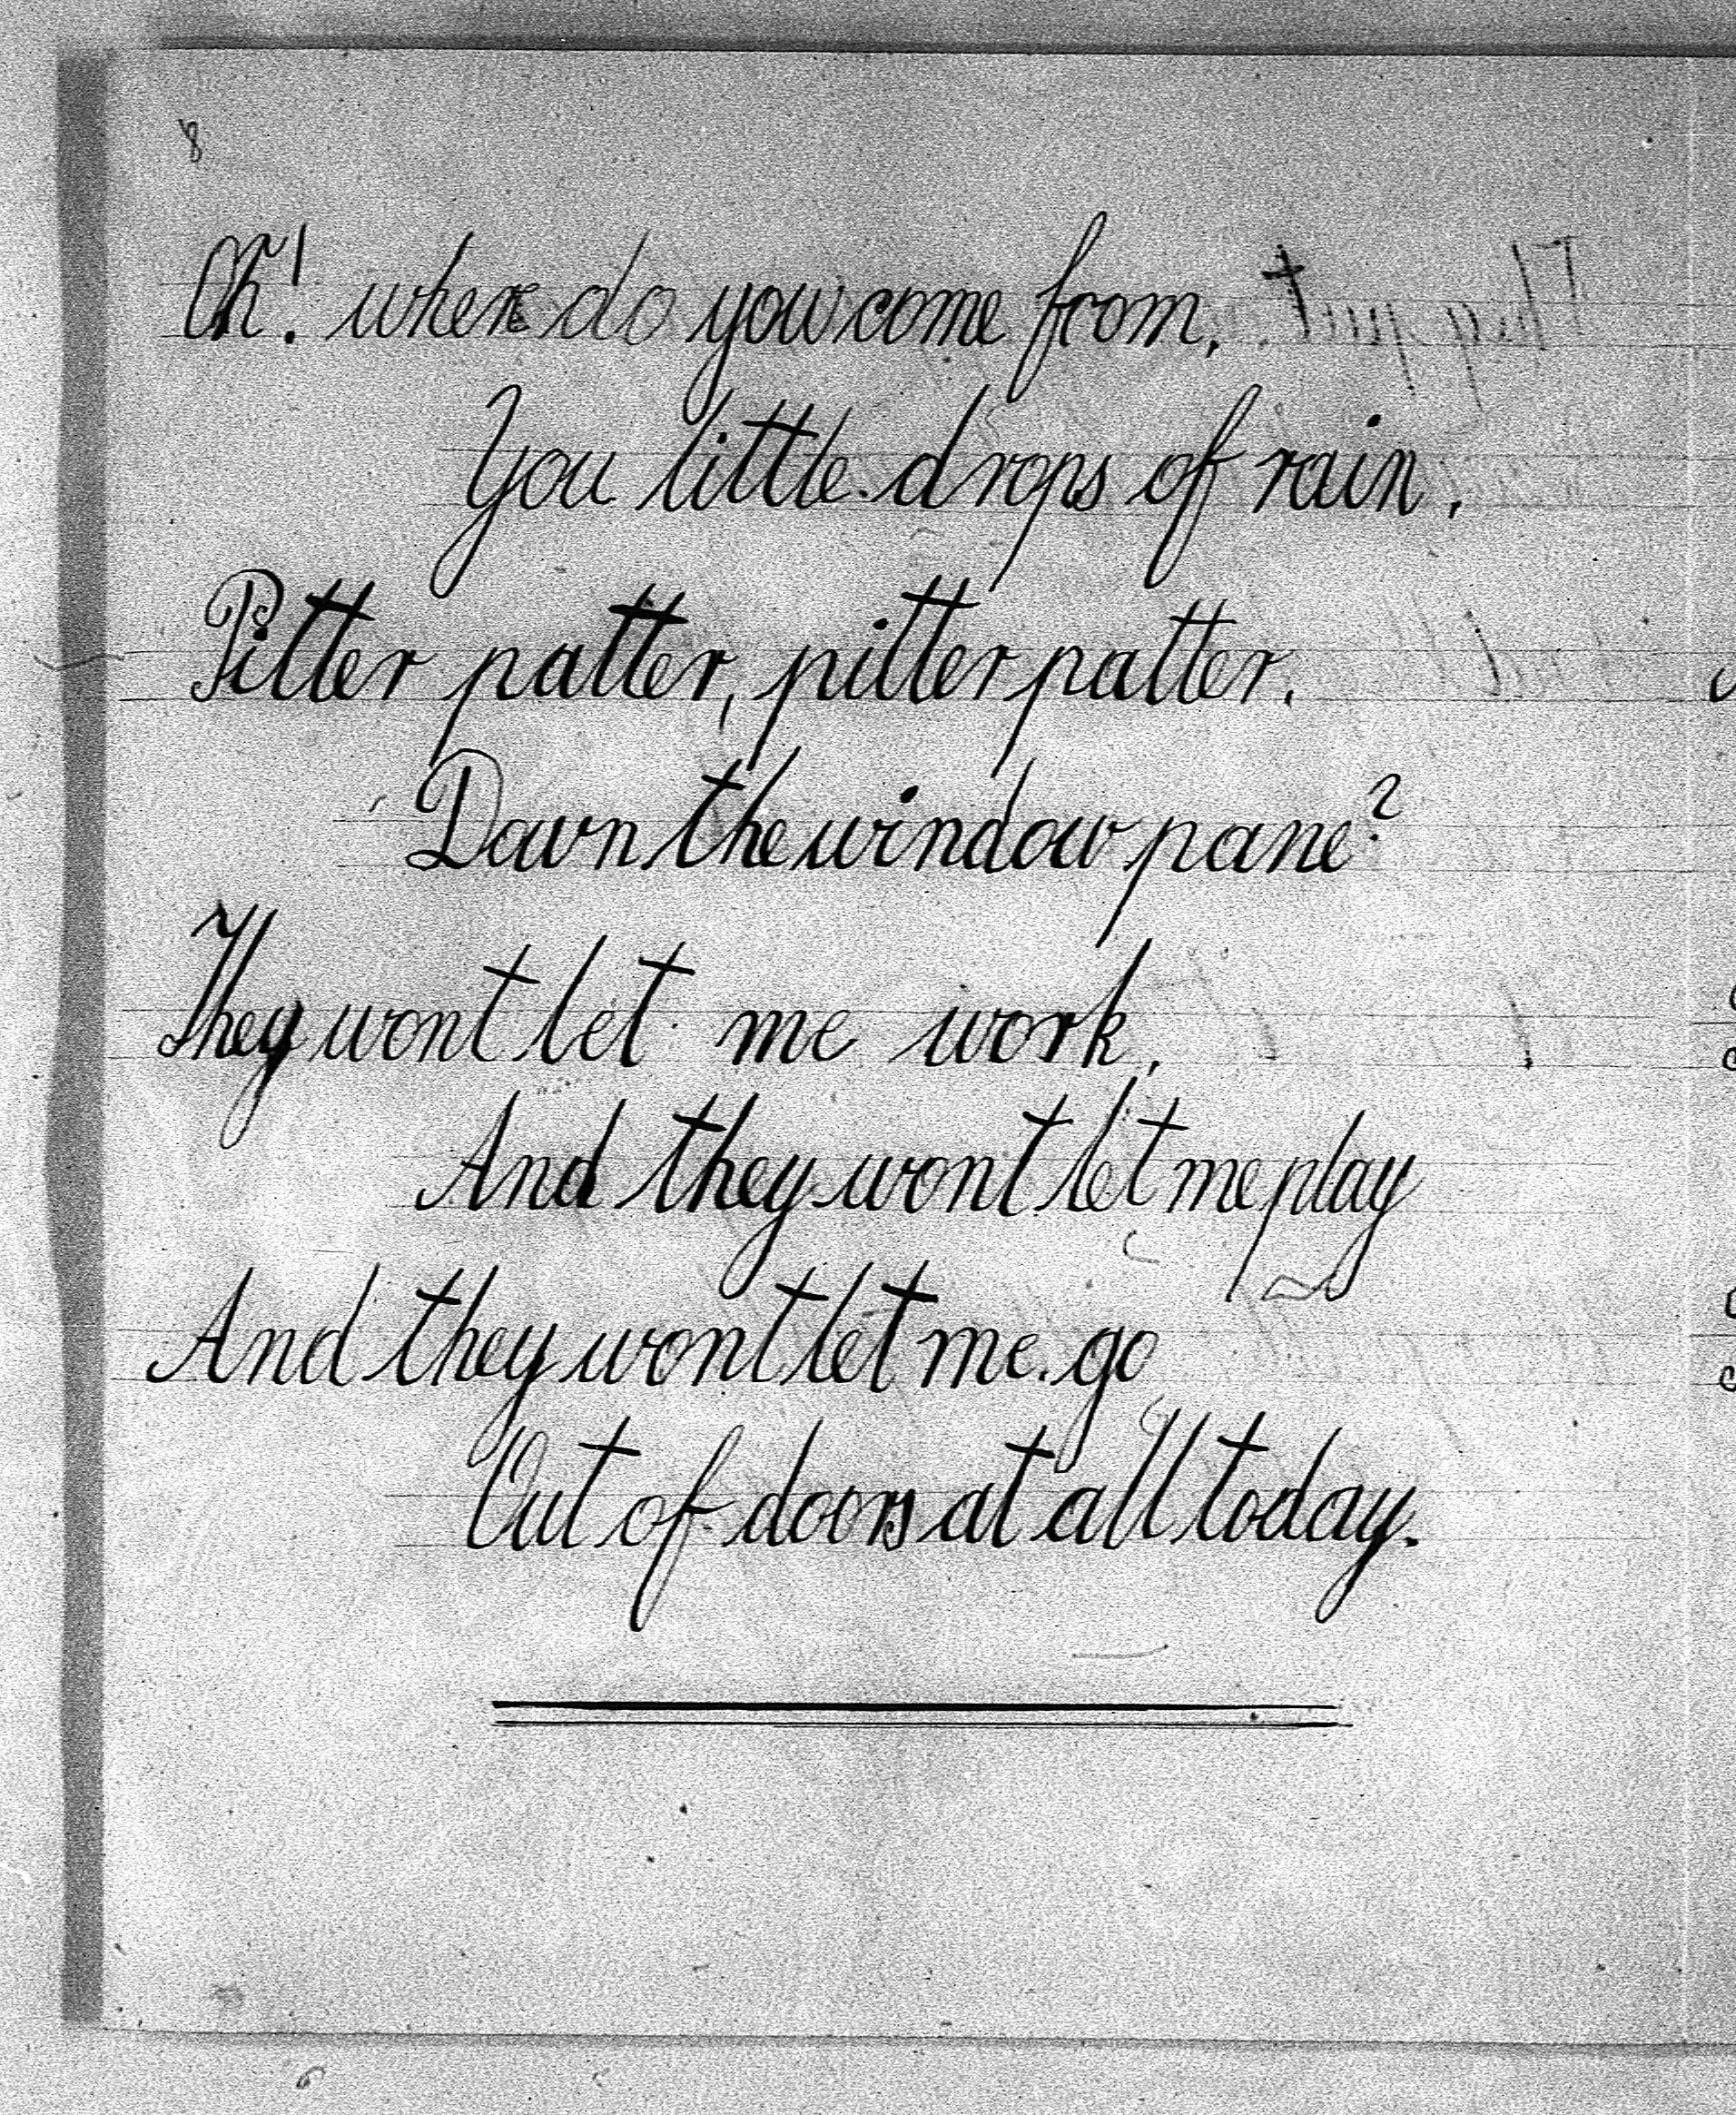 8
Oh! where do you come from,
You little drops of rain,
Pitter patter, pitter patter,
Down the window pane?
They wont let me work,
And they wont let me play
And they wont let me go
Out of doors at all today.